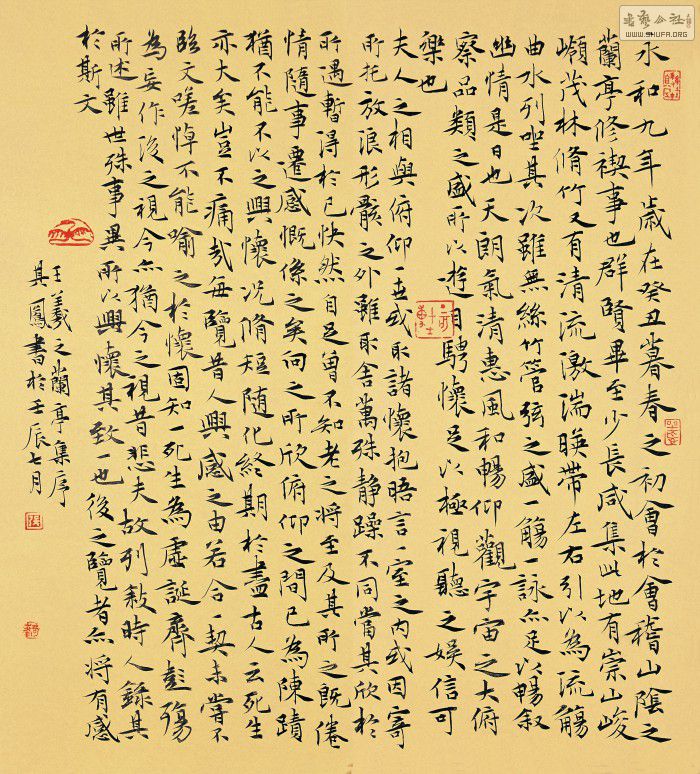 永和九年歲在癸丑暮春之初會於會稽山陰之
蘭亭修禊事也群賢畢至少長咸集此地有崇山峻
嶺茂林脩竹又有清流激湍暎帶左右引以為流觴
曲水列坐其次雖無絲竹管弦之盛一觴一詠亦足以暢敘
幽情是日也天朗氣清惠風和暢仰觀宇宙之大俯
察品類之盛所以遊目騁懷足以極視聽之娛信可
樂也
夫人之相與俯仰一世或取諸懷抱晤言一室之內或因寄
所托放浪形骸之外雖取舍萬殊静躁不同當其欣於
所遇暫得於己快然自足曾不知老之將至及其所之既倦
情隨事遷感慨係之矣向之所欣俯仰之間已為陳蹟
猶不能不以之興懷况脩短随化終期於盡古人云死生
亦大矣豈不痛哉每覽昔人興感之由若合一契未嘗不
臨文嗟悼不能喻之於懷固知一死生為虛誕齊彭殤
為妄作後之視今亦猶今之視昔悲夫故列敘時人錄其
所述雖世殊事異所以興懷其致一也後之覽者亦將有感
於斯文
王羲之蘭亭集序
其鳳書於壬辰七月
書藝公社
WWW.SHUFA.ORG